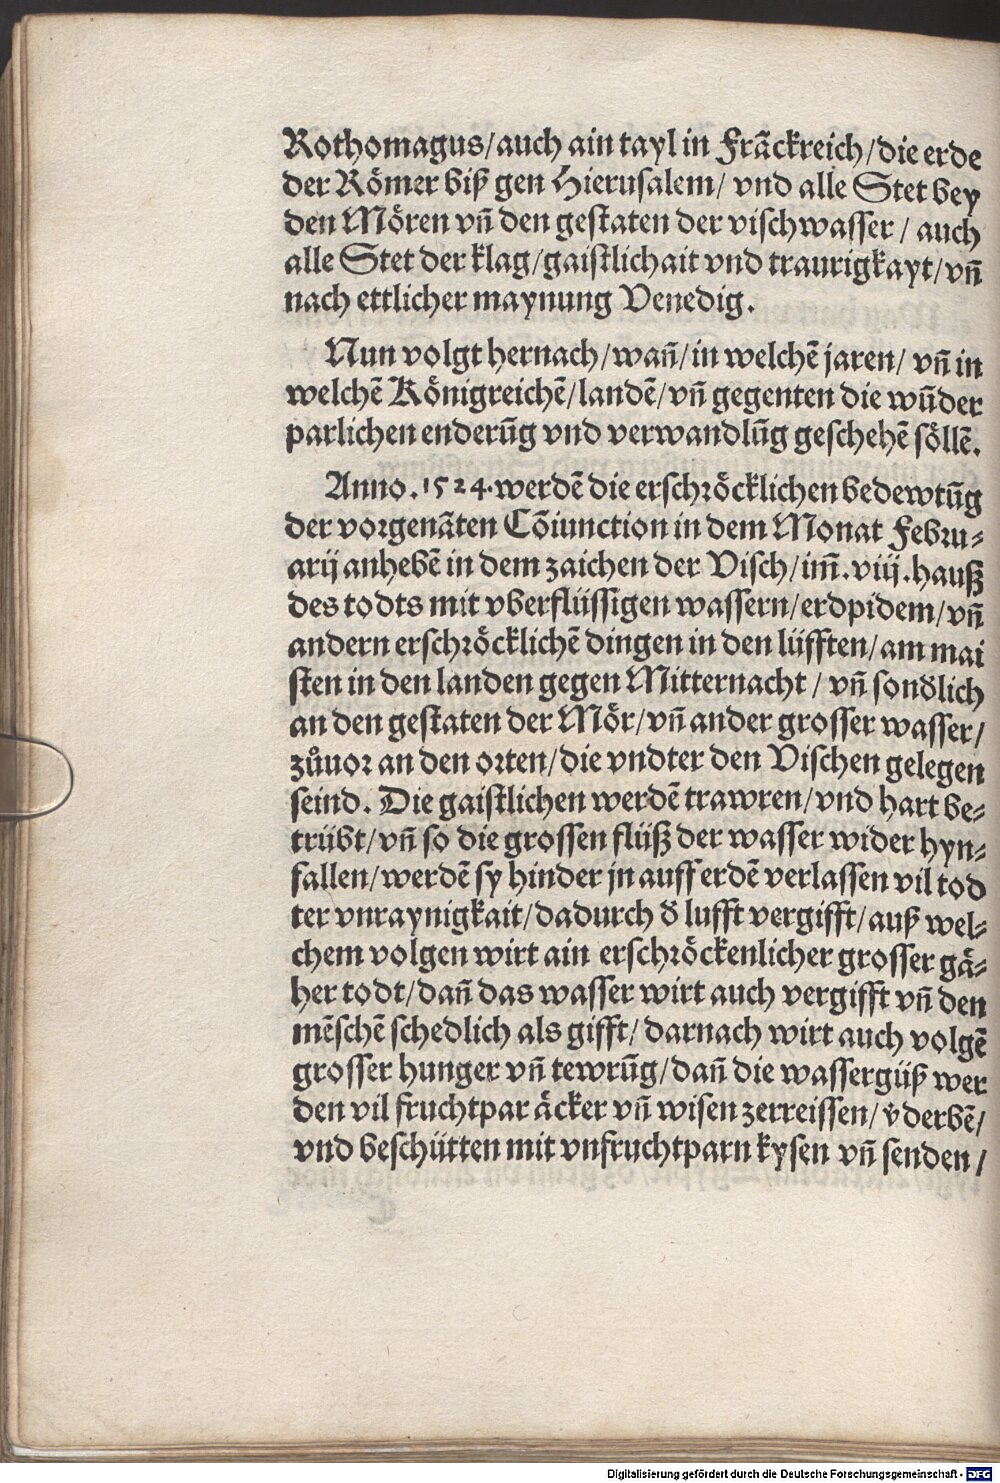 Rothomagus/auch ain tayl in Frãckreich/die erde
der Römer biß gen Hierusalem/ vnd alle Stet bey
den Mören vñ den gestaten der vischwasser / auch
alle Stet der klag/gaistlichait vnd traurigkayt/vñ
nach ettlicher maynung Venedig.
Nun volgt hernach/wañ/in welchẽ jaren/ vñ in
welchẽ Königreichẽ/landẽ/vñ gegenten die wũder
parlichen enderũg vnd verwandlũg geschehẽ söllẽ.
Anno.1524.werdẽ die erschröcklichen bedewtũg
der vorgenãten Cõiunction in dem Monat Febru⸗
arij anhebẽ in dem zaichen der Visch/im̃.viij.hauß
des todts mit vberflüssigen wassern/erdpidem/vñ
andern erschröcklichẽ dingen in den lüfften/am mai
sten in den landen gegen Mitternacht / vñ sonđlich
an den gestaten der Mör/vñ ander grosser wasser/
zůuor an den orten/die vndter den Vischen gelegen
seind. Die gaistlichen werdẽ trawren/vnd hart be⸗
trübt/vñ so die grossen flüß der wasser wider hyn⸗
fallen/werdẽ sy hinder jn auff erdẽ verlassen vil tod
ter vnraynigkait/dadurch đ lufft vergifft/auß wel⸗
chem volgen wirt ain erschröckenlicher grosser gä⸗
her todt/dañ das wasser wirt auch vergifft vñ den
mẽschẽ schedlich als gifft/ darnach wirt auch volgẽ
grosser hunger vñ tewrũg/dañ die wassergüß wer
den vil fruchtpar äcker vñ wisen zerreissen/ ṽderbẽ/
vnd beschütten mit vnfruchtparn kysen vñ senden/
Digitalisierung gefördert durch die Deutsche Forschungsgemeinschaft - DFG